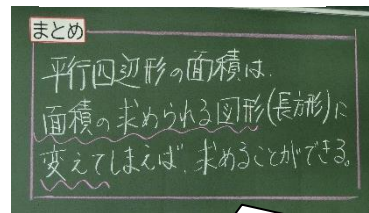 まとめ
平行四辺形の面積は、
面積の求められる図形(長方形)に
変えてしまえば、求めることができる。